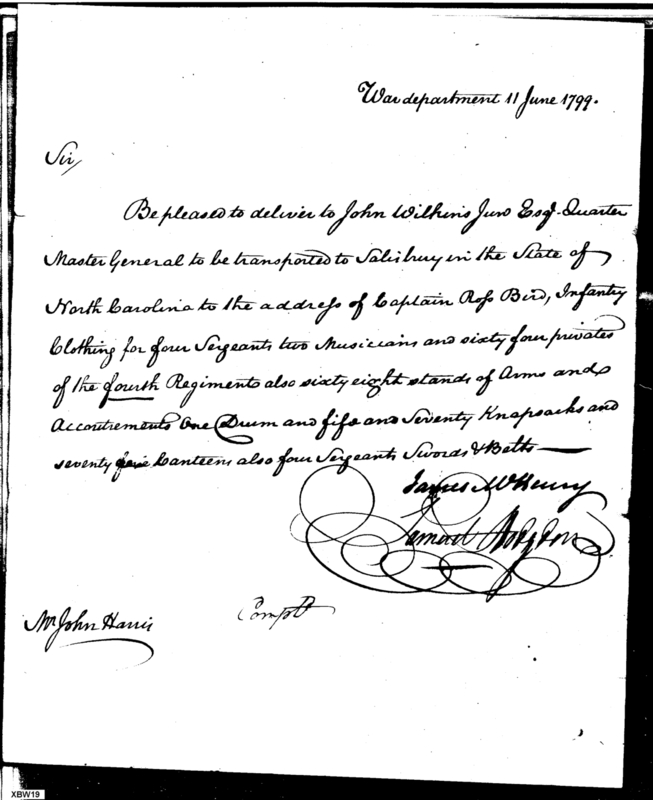 War department 11 June 1799.
Sir/
Be pleased to deliver to John Wilkins Junr Esqr. Quarter
Master General to be transported to Salisbury in the State of
North Carolina to the address of Captain Ross Bird, Infantry
Clothing for four Sergeants two Musicians and sixty four privates
of the fourth Regiment also sixty eight stands of Arms and
Accoutrements One Drum and fife and Seventy Knapsacks and
seventy Canteens also four Sergeants Swords & Belts —
James McHenry
Samuel Hodgdon
Compt
Mr. John Harris
XBW19